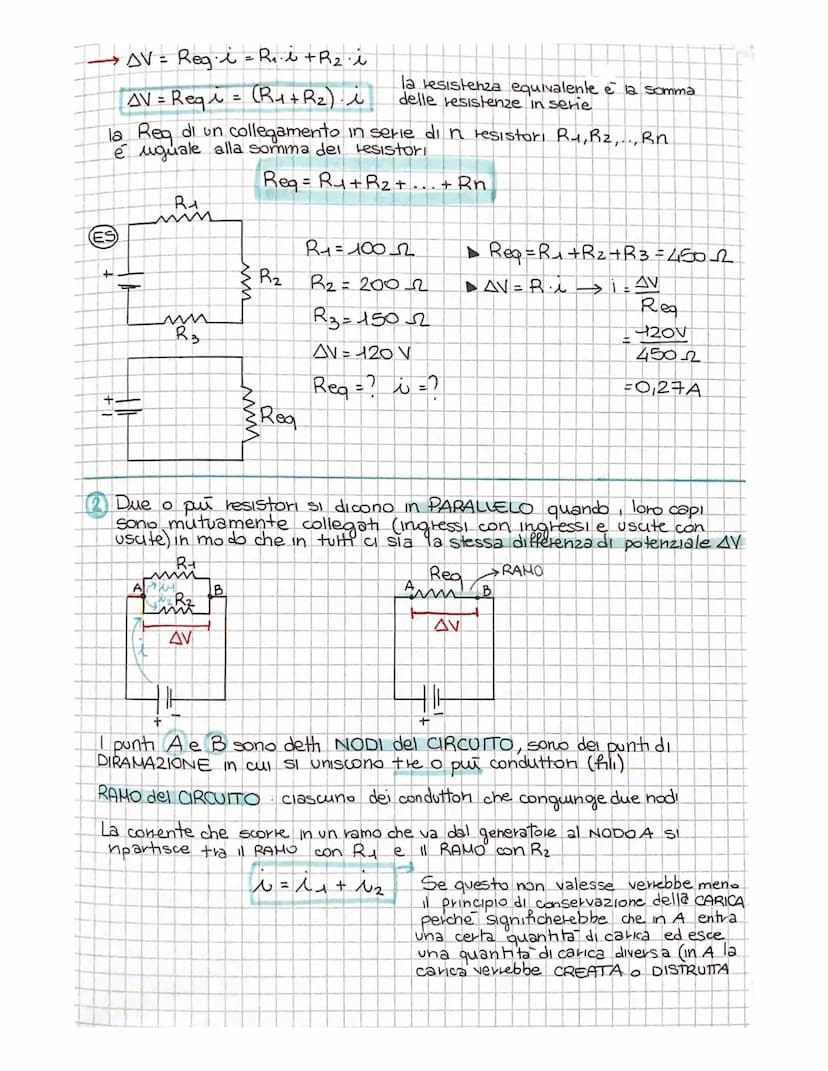 → ΔV = Req·i = R1·i + R2·i
ΔV = Req i = (R1+R2)·i
la resistenza equivalente è la somma
delle resistenze in serie
la Req di un collegamento in serie di n resistori R1,R2,..,Rn
é uguale alla somma dei resistori
Req = R1+R2+...+Rn
ES
R1
R2
R3
+
R1=100 Ω
R2 = 200 Ω
R3=150 Ω
ΔV=120 V
Req=? i=?
▶ Req=R1+R2+R3=450 Ω
▶ ΔV=R·i → i = ΔV
Req
= 120V
450 Ω
=0,27A
+
-
Req
2 Due o puí resistori si dicono in PARALLELO quando i loro capi
sono mutuamente collegati (ingressi con ingressi e uscite con
uscite) in modo che in tutti ci sia la stessa differenza di potenziale ΔV
R1
A
i1
B
i2
R2
ΔV
i
+ -
Req → RAMO
A
B
ΔV
+ -
I punti A e B sono detti NODI del CIRCUITO, sono dei punti di
DIRAMAZIONE in cui si uniscono tre o puí conduttori (fili)
RAMO del CIRCUITO : ciascuno dei conduttori che congiunge due nodi
La corrente che scorre in un ramo che va dal generatore al NODO A si
ripartisce tra il RAMO con R1 e il RAMO con R2
i = i1 + i2 →
Se questo non valesse verrebbe meno
il principio di conservazione della CARICA
perché significherebbe che in A entra
una certa quantità di carica ed esce
una quantità di carica diversa (in A la
carica verrebbe CREATA o DISTRUTTA